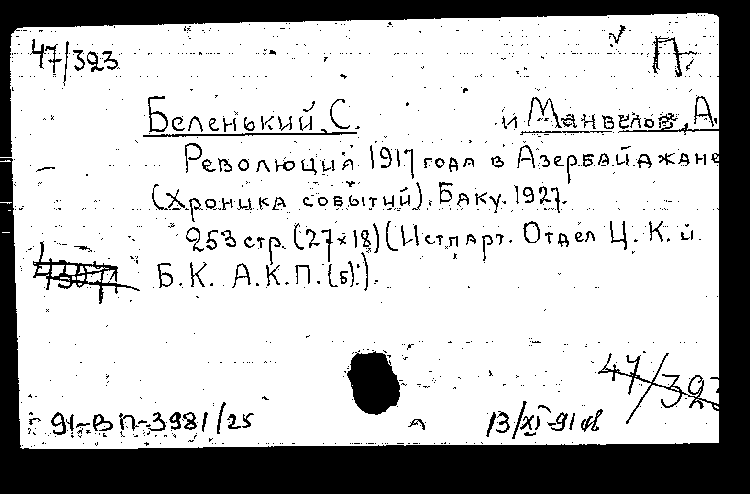 47/323 П.
Беленький, С. и Манвелов, А.
Революция 1917 года в Азербайджане
(Хроника событий). Баку. 1927.
253 стр. (27×18) (Истпарт. Отдел Ц. К. и
Б. К. А.К.П.(б).).
47/323
91-В П-3981/25 13/XI-91